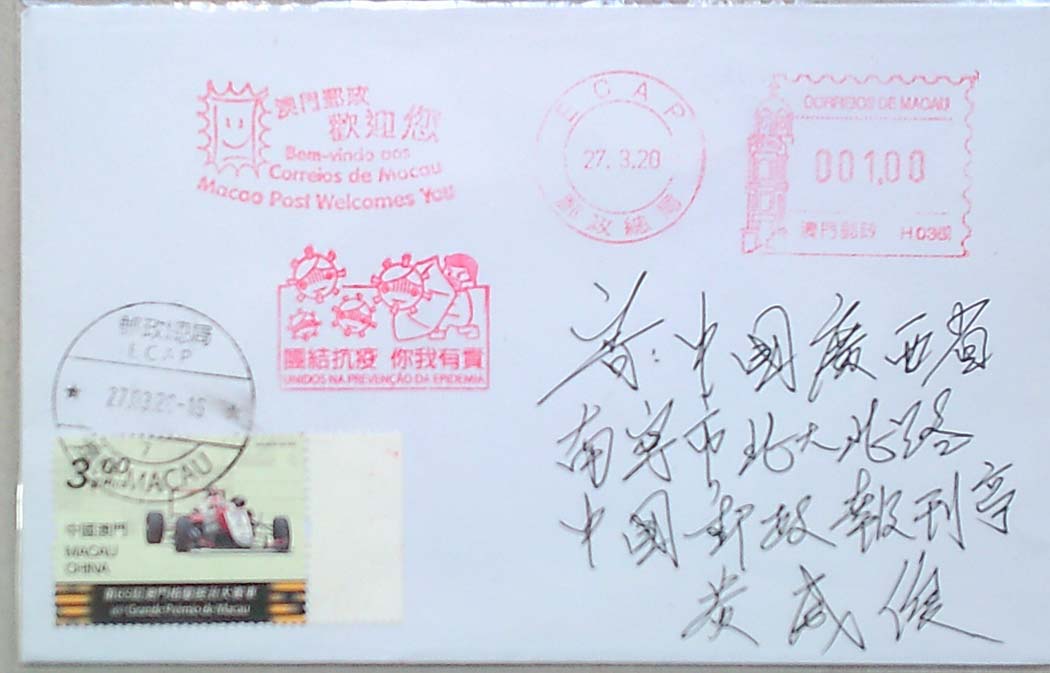 澳門郵政
歡迎您
Bem-vindo aos
Correios de Macau
Macao Post Welcomes You
ECAP
27. 3.20
郵政總局
CORREIOS DE MACAU
001,00
澳門郵政 H036
團結抗疫 你我有責
UNIDOS NA PREVENÇÃO DA EPIDEMIA
郵政總局
ECAP
MACAU
3.00
中國澳門
MACAU
CHINA
Grande Prémio de Macau
寄:中國廣西省
南宁市北大北路
中國郵政報刊亭
黄威俊